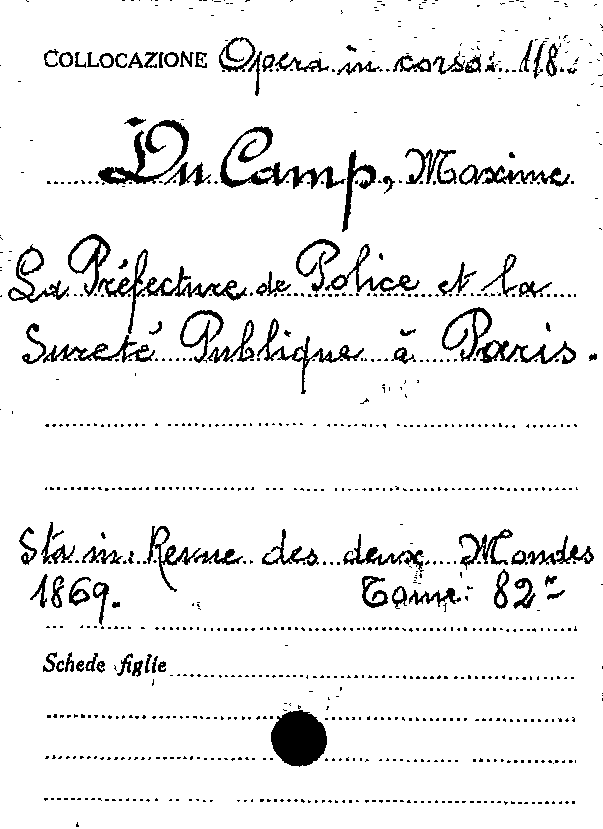 COLLOCAZIONE Opera in corso: 118.
Du Camp, Maxime
La Préfecture de Police et la
Sureté Publique à Paris.
Sta in: Revue des deux Mondes
1869. Tome: 82
Schede figlie